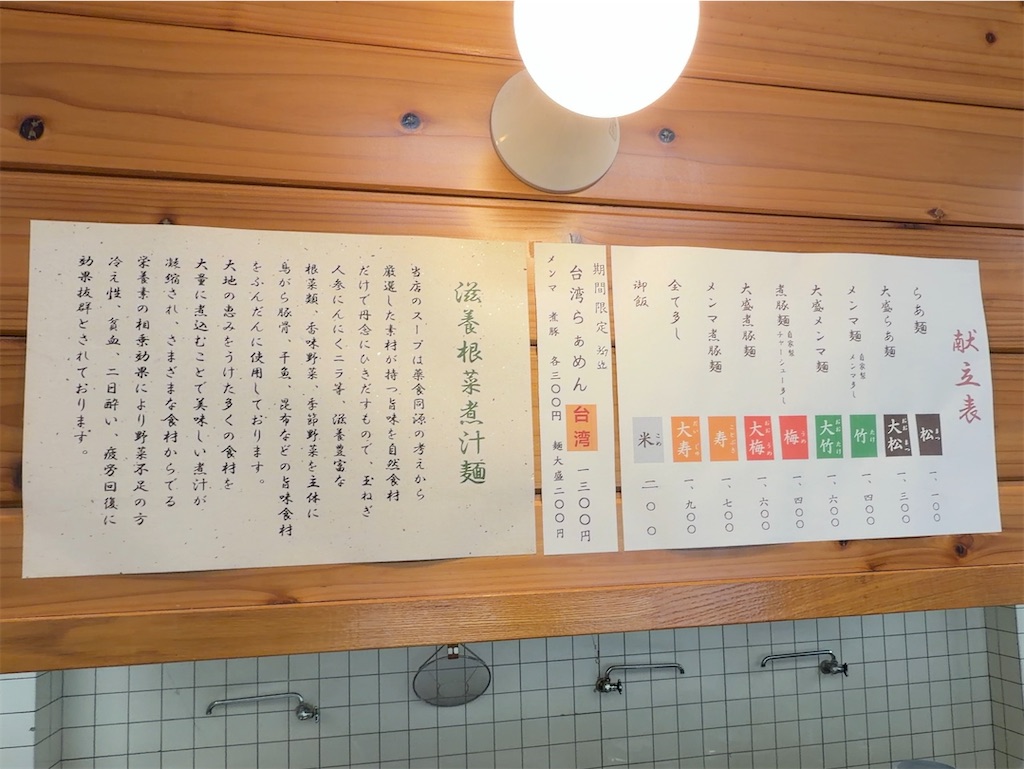 献立表
らぁ麺 松 まつ 一、一〇〇
大盛らぁ麺 大松 おおまつ 一、三〇〇
メンマ麺 自家製メンマ多し 竹 たけ 一、四〇〇
大盛メンマ麺 大竹 おおたけ 一、六〇〇
煮豚麺 自家製チャーシュー多し 梅 うめ 一、四〇〇
大盛煮豚麺 大梅 おおうめ 一、六〇〇
メンマ煮豚麺 寿 ことぶき 一、七〇〇
全て多し 大寿 だいじゅ 一、九〇〇
御飯 米 こめ 二〇〇
期間限定
台湾らぁめん 台湾 一三〇〇円
メンマ 煮豚 各三〇〇円 麺大盛二〇〇円
滋養根菜煮汁麺
当店のスープは薬食同源の考えから
厳選した素材が持つ旨味を自然食材
だけで丹念にひきだすもので、玉ねぎ
人参にんにくニラ等 滋養豊富な
根菜類、香味野菜、季節野菜を主体に
鳥がら豚骨、干魚、昆布などの旨味食材
をふんだんに使用しております。
大地の恵みをうけた多くの食材を
大量に煮込むことで美味しい煮汁が
凝縮され、さまざまな食材からでる
栄養素の相乗効果により野菜不足の方
冷え性、貧血、二日酔い、疲労回復に
効果抜群とされております。